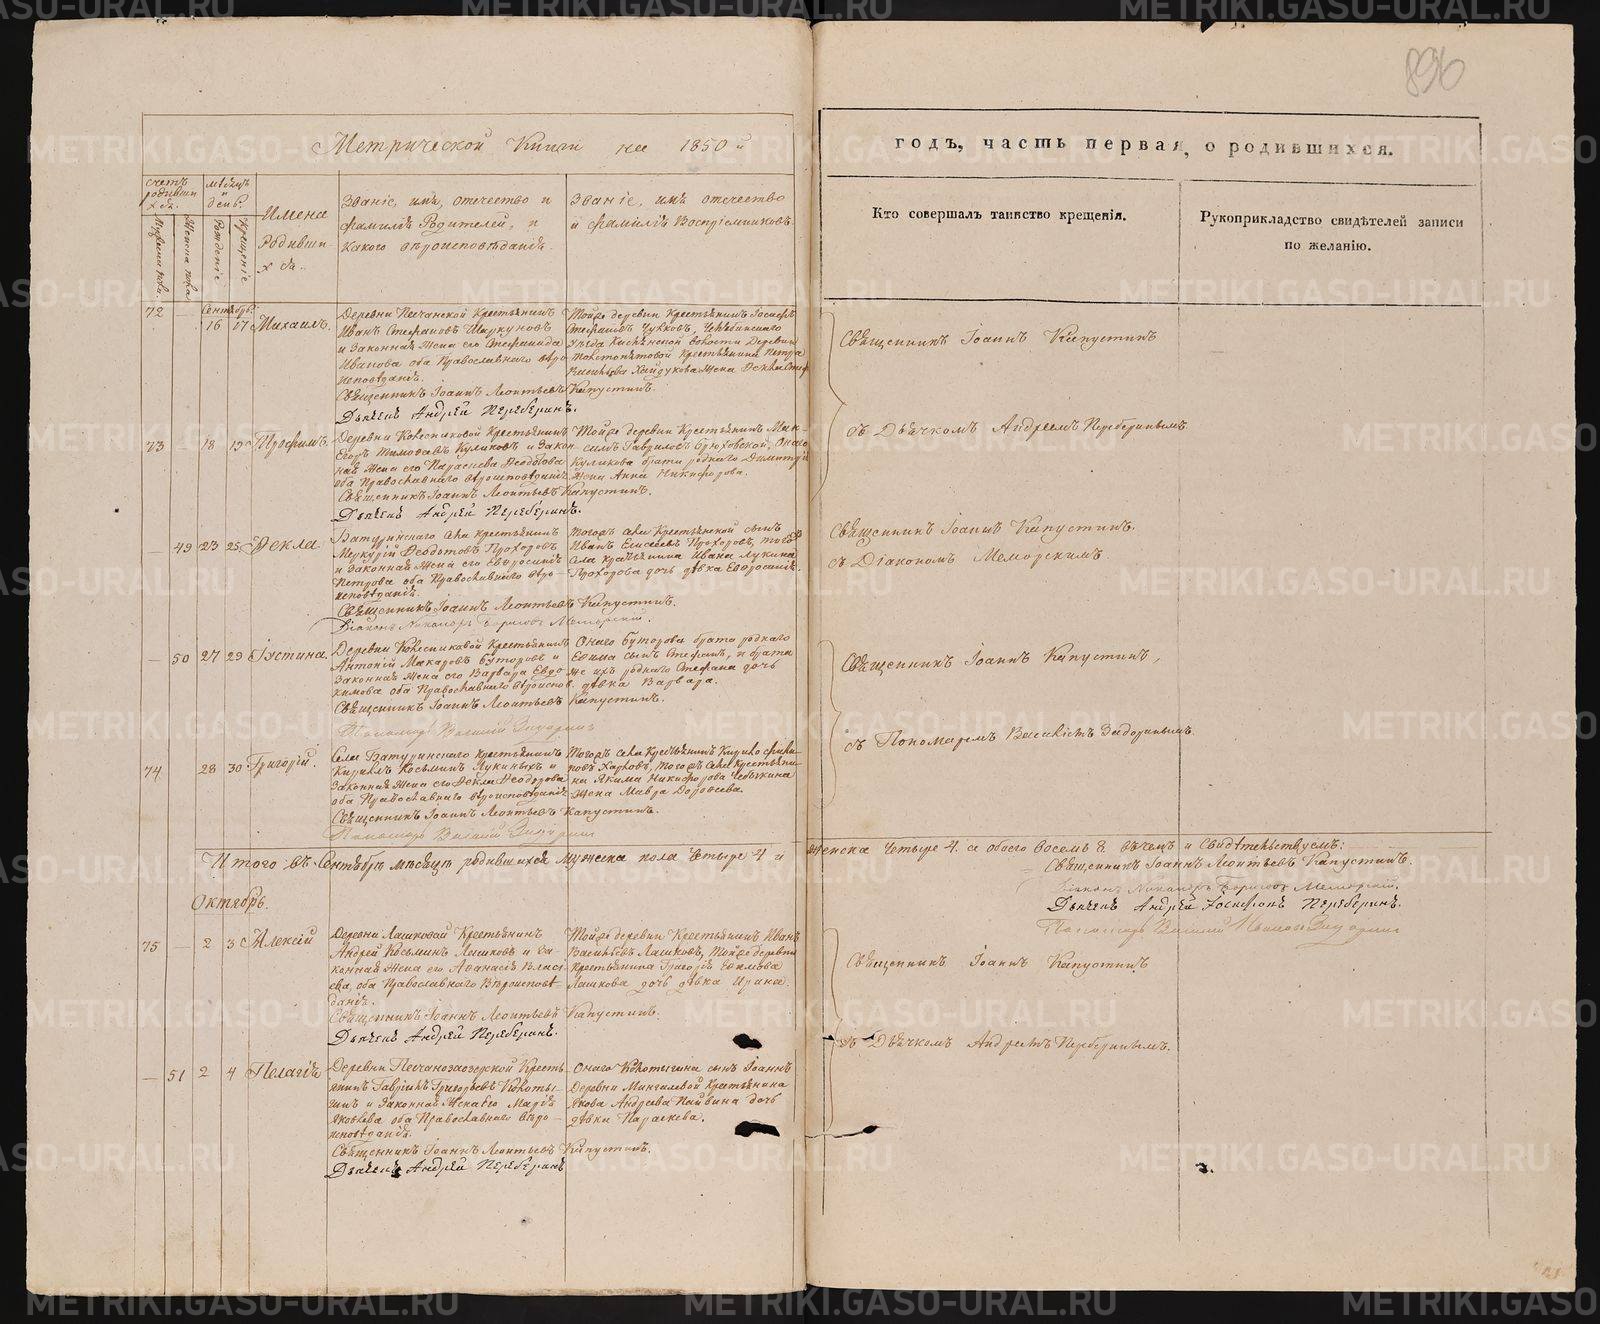 896
Метрической Книги на 1850й
годъ, часть первая, о родившихся.
счетъ родившихся.
мѣсяцъ и день.
Имена Родившихся.
Званіе, имя, отечество и
фамилія Родителей, и
какого вѣроисповѣданія.
Званіе, имя, отечество
и фамилія Воспріемниковъ.
Кто совершалъ таинство крещенія.
Рукоприкладство свидѣтелей записи
по желанію.
Мужеска пола.
Женска пола.
Рожденіе
Крещеніе
Сентябрь.
72 — 16 17 Михаилъ.
Деревни Песчанской Крестьянинъ
Иванъ Стефановъ
и Законная Жена его Стефанида
Иванова оба Православнаго вѣро-
исповѣданія.
Тойже деревни Крестьянинъ Іосифъ
Стефановъ Чулковъ, Челябинскаго
Уѣзда волости Деревни
Крестьянина Петра
Хайдукова Жена
Священникъ Іоаннъ Леонтьевъ Капустинъ.
Дьячекъ Андрей Переберинъ.
Священникъ Іоаннъ Капустинъ
съ Дьячкомъ Андреемъ Переберинымъ
73 — 18 19 Трофимъ.
Деревни Колесниковой Крестьянинъ
Егоръ Тимофеевъ Куликовъ и Закон-
ная Жена его Параскева Ѳеодотова
оба Православнаго вѣроисповѣданія
Тойже деревни Крестьянинъ Мак-
симъ Гавриловъ Брюховской, Онаго
Куликова брата роднаго Димитрія
Жена Анна Никифорова.
Священникъ Іоаннъ Леонтьевъ Капустинъ.
Дьячекъ Андрей Переберинъ.
— 49 23 25 Ѳекла.
Батуринскаго села Крестьянинъ
Меркурій Ѳеодотовъ Прохоровъ
и Законная Жена его Евфросинія
Петрова оба Православнаго вѣро-
исповѣданія.
Тогожъ села Крестьянской сынъ
Иванъ Елисеевъ Прохоровъ, тогожъ
села крестьянина Ивана Лукина
Прохорова дочь дѣвка Евфросинія.
Священникъ Іоаннъ Леонтьевъ Капустинъ.
Діаконъ Никаноръ Борисовъ Меморскій.
Священникъ Іоаннъ Капустинъ.
съ Діакономъ Меморскимъ.
— 50 27 29 Іустина.
Деревни Колесниковой Крестьянинъ
Антоній Макаровъ Буторовъ и
Законная Жена его Варвара Евдо-
кимова оба Православнаго вѣроиспов.
Онаго Буторова брата роднаго
Ефима сынъ Стефанъ, и брата
же ихъ роднаго Стефана дочь
дѣвка Варвара.
Священникъ Іоаннъ Леонтьевъ Капустинъ.
Пономарь Василій Зидоринъ
Священникъ Іоаннъ Капустинъ,
съ Пономаремъ Василіемъ Зидоринымъ
74 28 30 Григорій.
Села Батуринскаго крестьянинъ
Кириллъ Косьминъ Лукиныхъ и
Законная Жена его Ѳекла Ѳеодорова
оба Православнаго вѣроисповѣданія
Тогожъ села Крестьянинъ
Харловъ, Тогожъ села Крестьяни-
на Якима Никифорова
Жена Мавра Дороѳеева.
Священникъ Іоаннъ Леонтьевъ Капустинъ.
Пономарь Василій Зидоринъ
Итого въ Сентябрѣ мѣсяцѣ родившихся мужеска пола четыре 4 и
женска четыре 4. а обоего восемь 8. въчемъ и Свидѣтельствуемъ:
Священникъ Іоаннъ Леонтьевъ Капустинъ.
Діаконъ Никаноръ Борисовъ Меморскій.
Дьячекъ Андрей Іосифовъ Переберинъ.
Пономарь Василій Ивановъ Зидоринъ
Октябрь.
75 — 2 3 Алексій
Деревни Лашковой Крестьянинъ
Андрей Косьминъ Лашковъ и за-
конная Жена его Аѳанасія Власі-
ева, оба Православнаго Вѣроисповѣ-
данія.
Тойже деревни Крестьянинъ Иванъ
Васильевъ Лашковъ, Тойже деревни
крестьянина Григорія Ефимова
Лашкова дочь дѣвка Ирина.
Священникъ Іоаннъ Леонтьевъ Капустинъ.
Дьячекъ Андрей Переберинъ.
Священникъ Іоаннъ Капустинъ
съ Дьячкомъ Андреемъ Переберинымъ.
— 51 2 4 Пелагія
Деревни Песчаноозерской Кресть-
янинъ Гавріилъ Григорьевъ Колоты-
гинъ и Законная Жена Его Марія
Яковлева оба Православнаго Вѣро-
исповѣданія.
Онаго Колотыгина сынъ Іоаннъ
Деревни Мангилевой Крестьянина
Якова Андреева Пайвина дочь
дѣвка Параскева.
Священникъ Іоаннъ Леонтьевъ Капустинъ.
Дьячекъ Андрей Переберинъ
METRIKI.GASO-URAL.RU